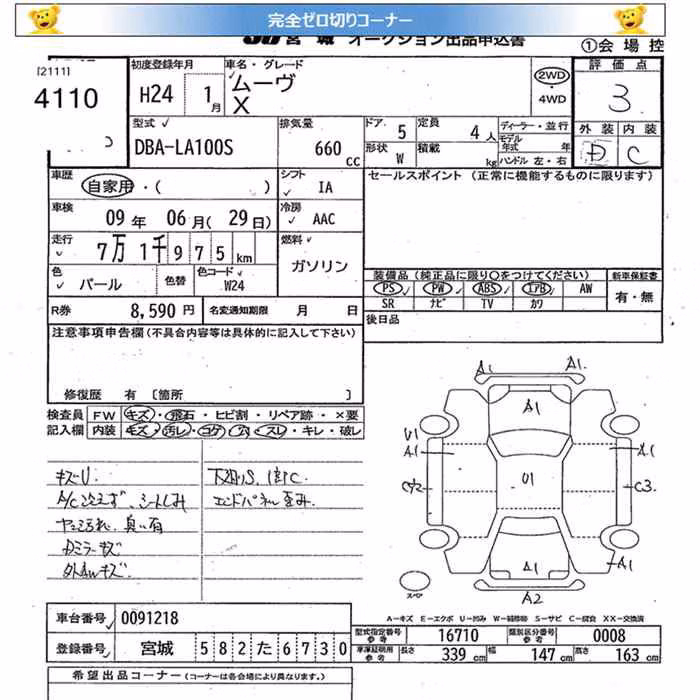 完全ゼロ切りコーナー
宮城 オークション出品申込書
①会場控
[2111]
4110
初度登録年月
H24 1月
車名・グレード
ムーヴ
X
2WD
・
4WD
評価点
3
外装 内装
D C
型式
DBA-LA100S
排気量
660 cc
ドア 5
形状 W
定員 4人
積載 kg
ディーラー・並行
モデル年式 年
ハンドル 左・右
車歴
自家用・( )
シフト
IA
セールスポイント (正常に機能するものに限ります)
車検
09年 06月(29日)
冷房
AAC
走行
7万1千975km
燃料
ガソリン
色
パール
色替
色コード
W24
装備品(純正品に限り○をつけてください)
新車保証書
PS PW ABS エアB AW
SR ナビ TV カワ
有・無
R券 8,590円
名変通知期限 月 日
後日品
注意事項申告欄(不具合内容等は具体的に記入して下さい)
修復歴 有〔箇所 〕
検査員 FW キズ・飛石・ヒビ割・リペア跡・×要
記入欄 内装 キズ・汚レ・コゲ・穴・スレ・キレ・破レ
キズU
A/C冷えず、シートしみ
臭い有
Dミラーキズ
外AWキズ
下廻りS
エンドパネル歪み
A1 A1
A1
U1
A1
A1
U1
C3
A1
A1
A2
スペア
A-キズ E-エクボ U-凹み W-補修跡 S-サビ C-腐食 XX-交換済
車台番号 0091218
登録番号 宮城 582た6730
型式指定番号 参考 16710
類別区分番号 参考 0008
車庫証明用 参考 長さ 339cm 幅 147cm 高さ 163cm
希望出品コーナー (コーナーは各会場により異なります。)